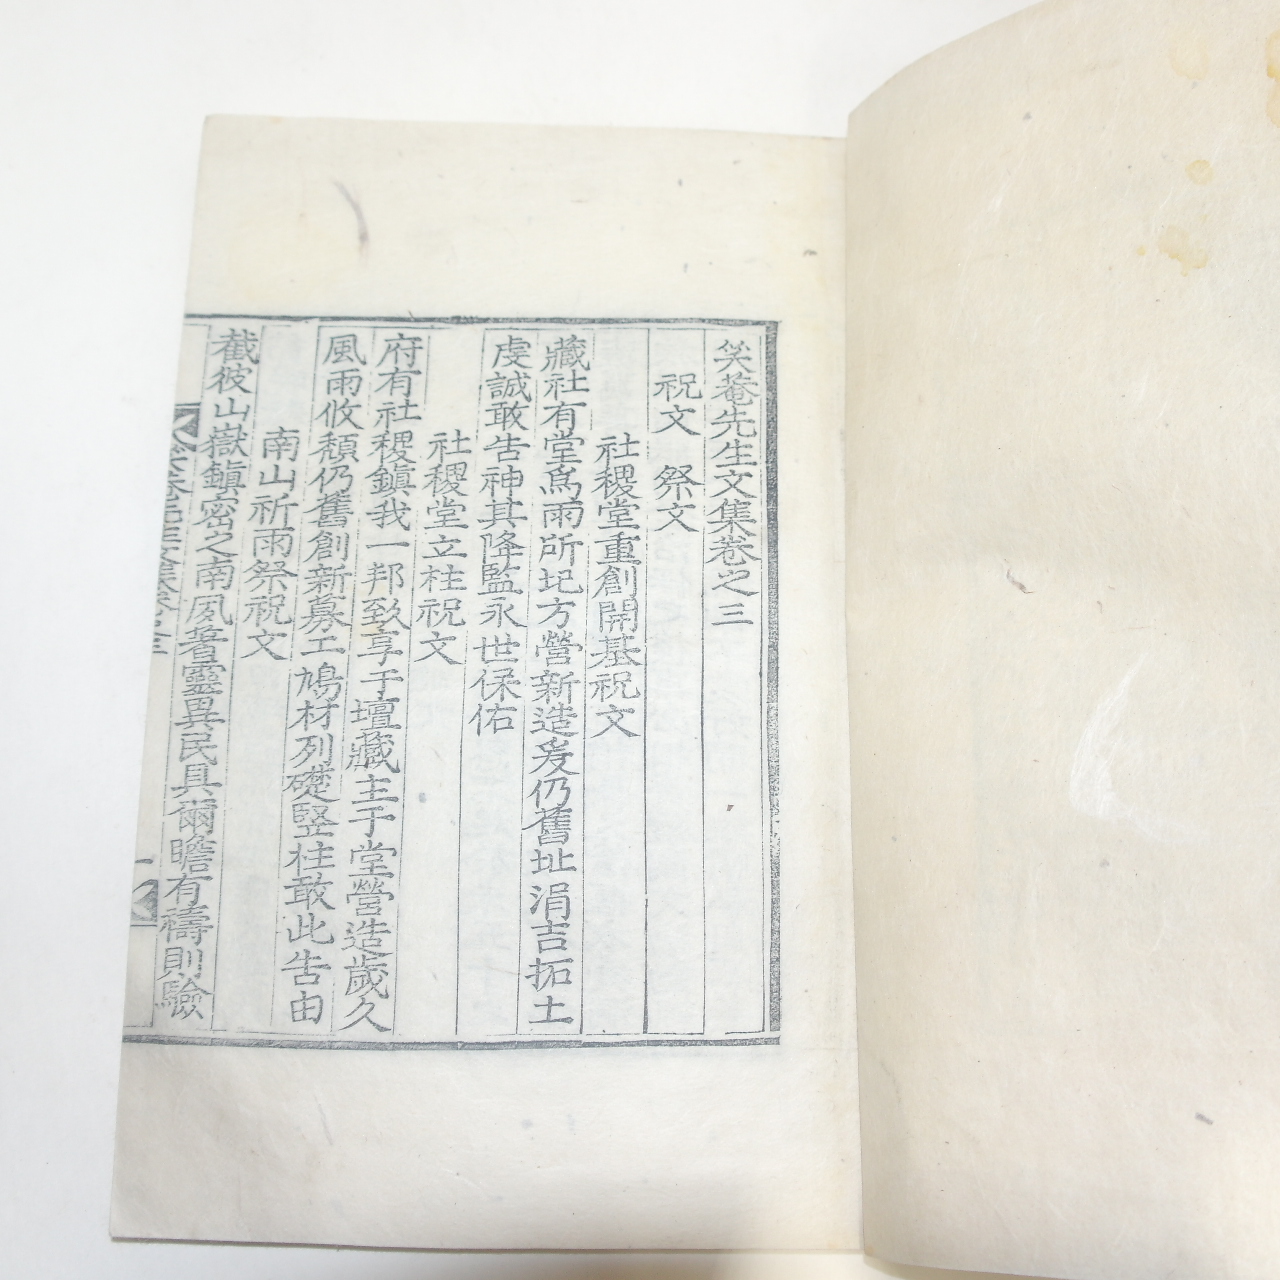 笑菴先生文集卷之三
祝文 祭文
社稷堂重創開基祝文
藏社有堂爲雨所圮方營新造爰仍舊址涓吉拓土
虔誠敢告神其降監永世保佑
社稷堂立柱祝文
府有社稷鎭我一邦致享于壇藏主于堂營造歲久
風雨攸頹仍舊創新募工鳩材列礎竪柱敢此告由
南山祈雨祭祝文
巀彼山嶽鎭密之南夙著靈異民具爾瞻有禱則驗
笑菴先生文集卷之三 一